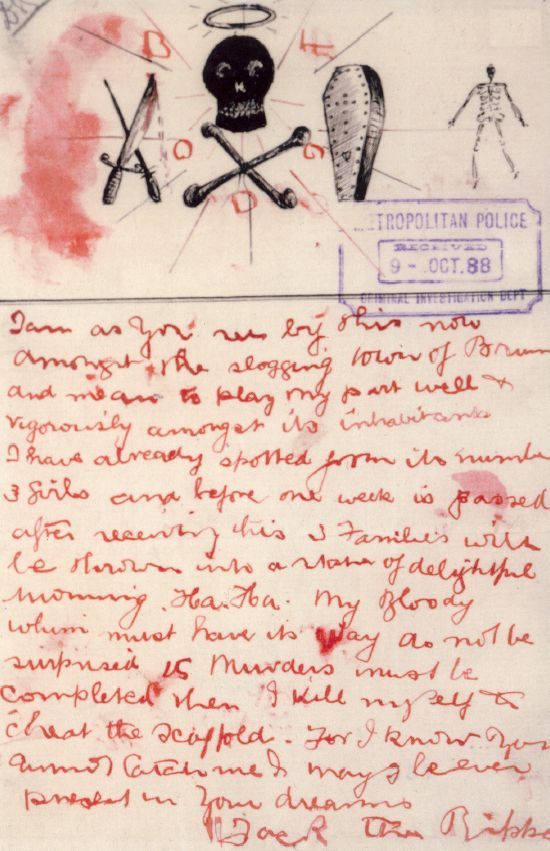 B
H
O
G
D
METROPOLITAN POLICE
RECEIVED
9 - OCT. 88
CRIMINAL INVESTIGATION DEPT
I am as you see by this now
amongst the slogging town of Brum
and mean to play my part well &
vigorously amongst its inhabitants
I have already spotted from its numbe
3 girls and before one week is passed
after receiving this 3 Families will
be thrown into a state of delightful
mourning. Ha. Ha. My Bloody
whim must have its way do not be
surprised 15 Murders must be
completed then I kill myself to
cheat the scaffold. For I know you
cannot catch me & may I be ever
present in your dreams
Jack The Rippe